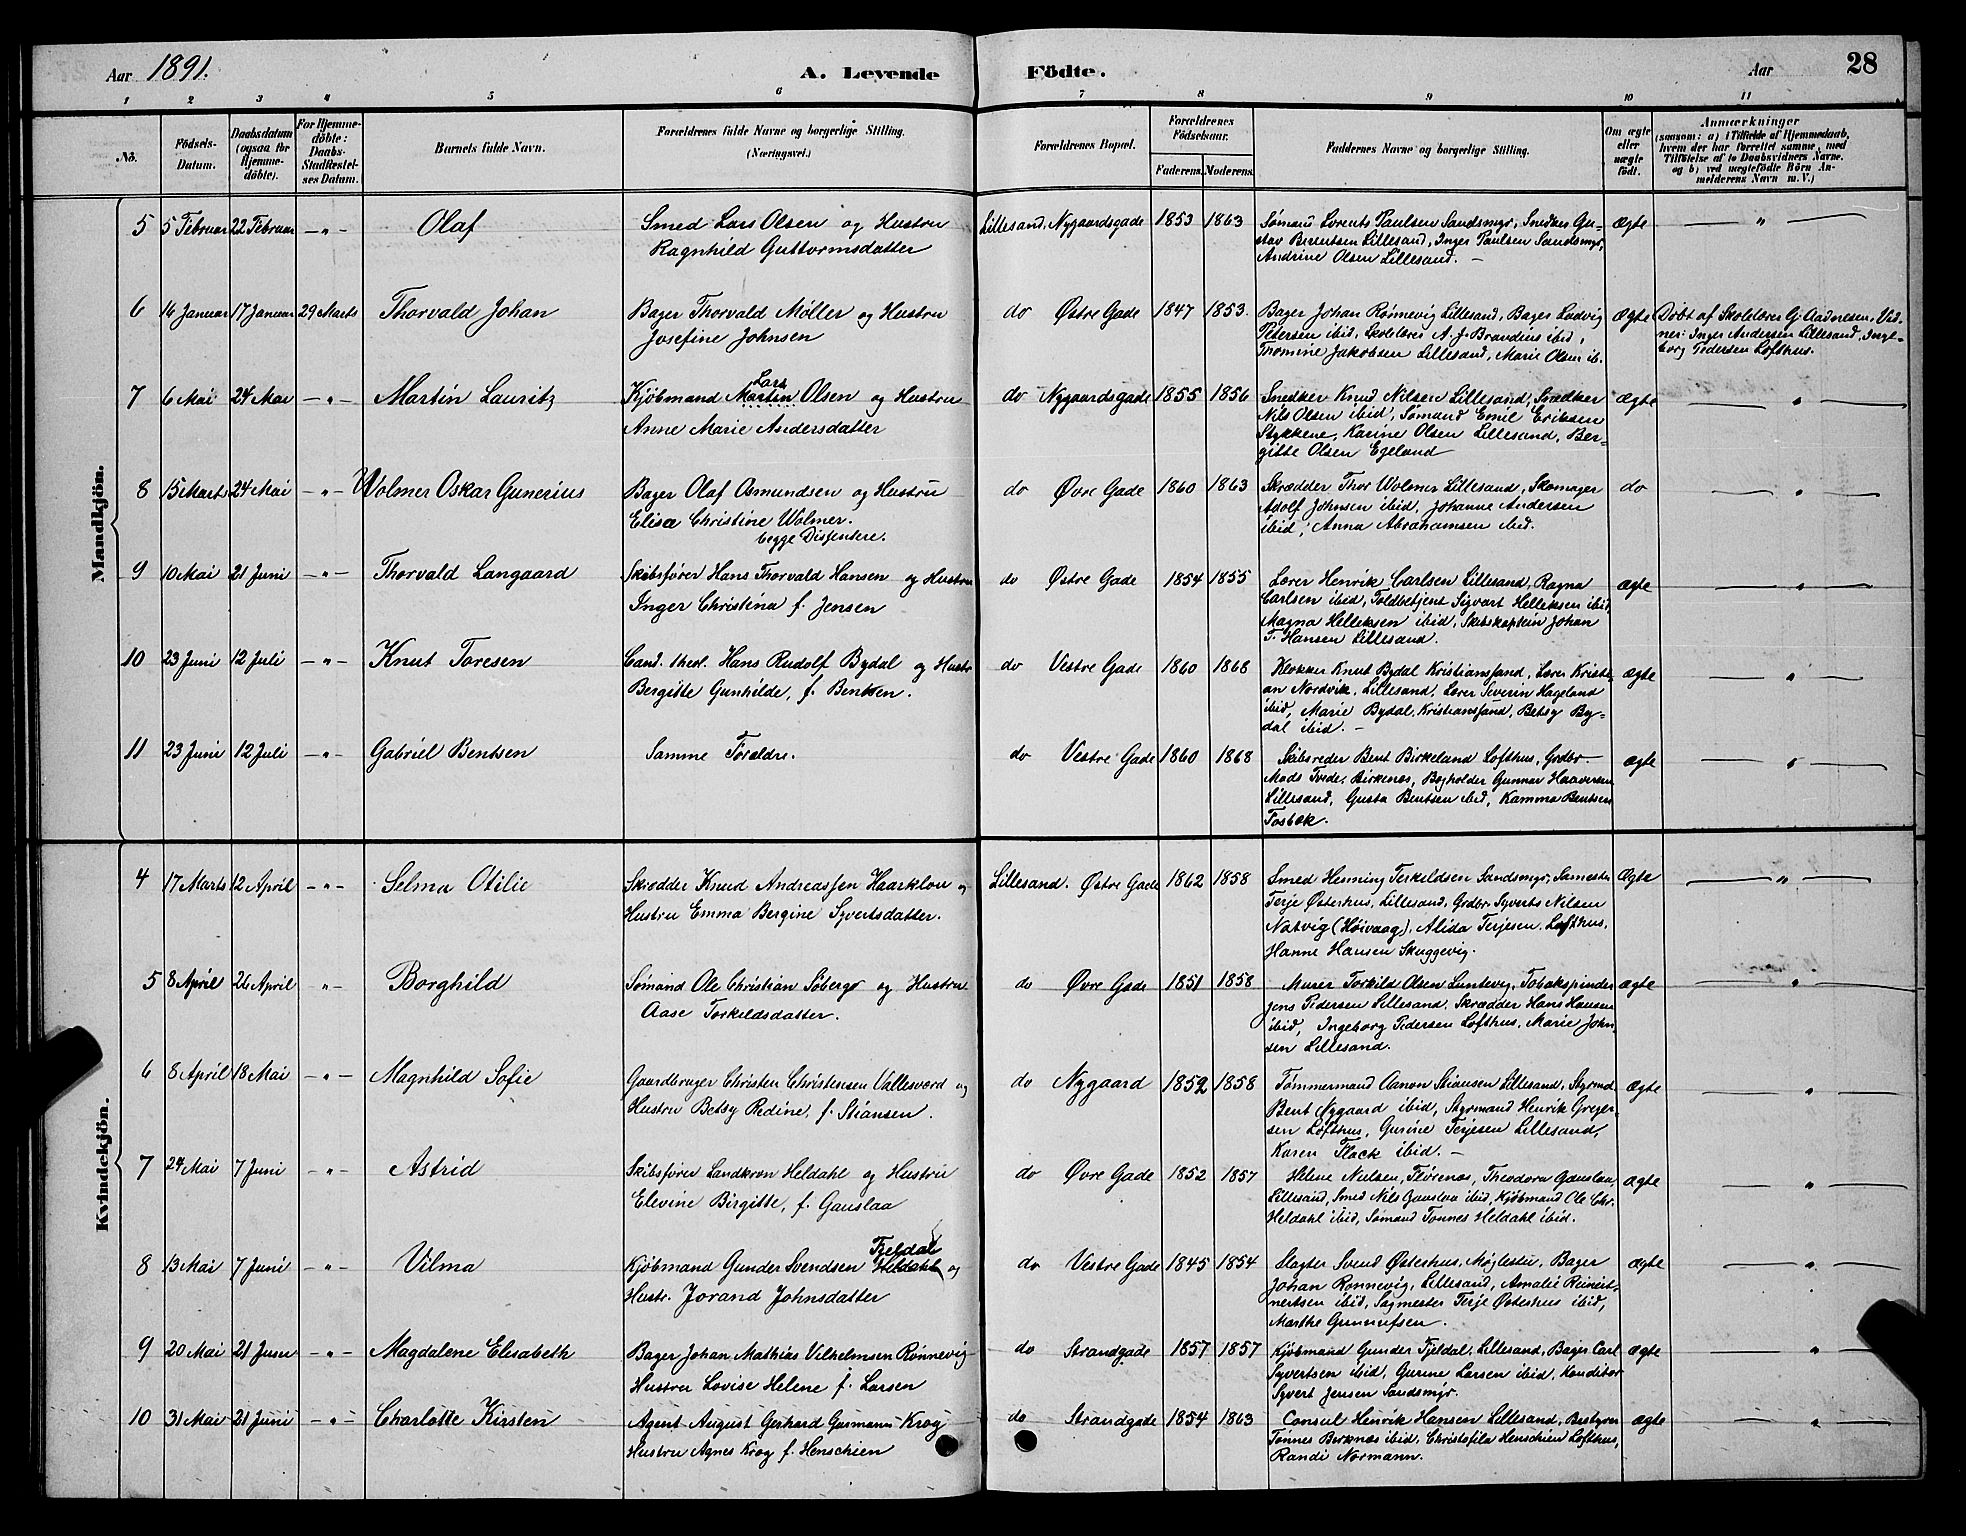 Aar 1891. A. Levende Födte. Aar 28
1 2 3 4 5 6 7 8 9 10 11
No. Födsels-Datum. Daabsdatum (ogsaa for Hjemme-döbte). For Hjemme-döbte: Daabs-Stadfæstel-ses Datum. Barnets fulde Navn. Forældrenes fulde Navne og borgerlige Stilling. (Næringsvei.) Forældrenes Bopæl. Forældrenes Födselsaar. Faderens. Moderens. Faddernes Navne og borgerlige Stilling. Om ægte eller uægte födt. Anmærkninger (saasom: a) i Tilfælde af Hjemmedaab, hvem der har forrettet samme, med Tilföielse af to Daabsvidners Navne. og b) ved uægtefödte Börn Anmelderens Navn m. V.)
Mandkjön.
5 5 Februar 22 Februar -"- Olaf Smed Lars Olsen og Hustru Lillesand, Nygaardsgade 1853 1863 Sømand Lorents Paulsen Sandsmyr, Snedker Gu- ægte — " —
Ragnhild Guttormsdatter stav Berentsen Lillesand, Inger Paulsen Sandsmyr,
Andrine Olsen Lillesand. —
6 16 Januar 17 Januar 29 Marts Thorvald Johan Bager Thorvald Møller og Hustru do Østre Gade 1847 1853. Bager Johan Rønnevig Lillesand, Bager Ludvig ægte Døbt af Skolelærer G. Aadnesen. Vid-
Josefine Johnsen Petersen ibid, Skolelærer A. J. Brandeus ibid, ner: Inger Andersen Lillesand, Inge-
Thomine Jakobsen Lillesand, Marie Olsen ib. borg Pedersen Lofthus.
7 6 Mai 24 Mai -"- Martin Lauritz Kjøbmand Martin Lars Olsen og Hustru do Nygaardsgade 1855 1856 Snedker Knud Nilsen Lillesand, Snedker ægte — " —
Anne Marie Andersdatter Nils Olsen ibid, Sømand Emil Eriksen
Stykkene, Karine Olsen Lillesand, Ber-
gitte Olsen Egeland
8 15 Marts 24 Mai -"- Wolmer Oskar Gunerius Bager Olaf Osmundsen og Hustru do Øvre Gade 1860 1863 Skrædder Thor Wolmer Lillesand, Skomager do — " —
Elisa Christine Wolmer. Adolf Johnsen ibid, Johanne Andersen
begge Dissentere. ibid, Anna Abrahamsen ibid.
9 10 Mai 21 Juni -"- Thorvald Langaard Skibsfører Hans Thorvald Hansen og Hustru do Østre Gade 1854 1855 Lærer Henrik Carlsen Lillesand, Ragna ægte — " —
Inger Christina f. Jensen Carlsen ibid, Toldbetjent Sigvart Helleksen ibid,
Magna Helleksen ibid, Skibskaptein Johan
T. Hansen Lillesand.
10 23 Juni 12 Juli -"- Knut Toresen Cand. theol. Hans Rudolf Bydal og Hustr do Vestre Gade 1860 1868 Klokker Knut Bydal Kristianssand, Lærer Kristi- ægte — " —
Bergitte Gunhilde, f. Bentsen. an Nordvik, Lillesand, Lærer Severin Hageland
ibid, Marie Bydal, Kristianssand, Betsy By-
dal ibid. —
11 23 Juni 12 Juli -"- Gabriel Bentsen Samme Forældre. do Vestre Gade 1860 1868 Skibsreder Bent Birkeland Lofthus, Grdbr. ægte — " —
Mads Tvede, Birkenes, Bogholder Gunnar Haaversen
Lillesand, Gusta Bentsen ibid, Kamma Bentsen
Fosbæk.
Kvindekjön.
4 17 Marts 12 April -"- Selma Otilie Skrædder Knud Andreassen Haarklou og Lillesand. Østre Gade 1862 1858 Smed Henning Terkeldsen Sandsmyr, Ægte — " —
Hustru Emma Bergine Syvertsdatter. Terje Østerhus, Lillesand, Grdbr. Syverts Nilsen
Natvig (Høivaag), Alida Terjesen Lofthus,
Hanne Hansen Skuggevig.
5 8 April 26 April " - Borghild Sømand Ole Christian Søberg og Hustru do Øvre Gade 1851 1858 Murer Torkild Olsen Luntevig, Tobakspinder ægte — " —
Aase Torkeldsdatter. Jens Pedersen Lillesand, Skrædder Hans Hansen
ibid, Ingeborg Pedersen Lofthus, Marie John-
sen Lillesand.
6 8 April 18 Mai -"- Magnhild Sofie Gaardbruger Christen Christensen Vallesverd og do Nygaard 1852 1858 Tømmermand Aanon Stiansen Lillesand, Styrmd. ægte — " —
Hustru Betsy Redine, f. Stiansen. Bent Nygaard ibid, Styrmand Henrik Greger-
sen Lofthus, Gurine Terjesen Lillesand,
Karen Flack ibid. —
7 24 Mai 7 Juni -"- Astrid Skibsfører Landkron Heldahl og Hustru do Øvre Gade 1852 1857 Helene Nielsen, Flørenes, Theodora Gauslaa ægte — " —
Elevine Birgitte, f. Gauslaa Lillesand, Smed Nils Gauslaa ibid, Kjøbmand Ole Chr.
Heldahl ibid, Sømand Tønnes Heldahl ibid.
8 13 Mai 7 Juni -"- Vilma Kjøbmand Gunder Svendsen Heldahl Fjeldal og do Vestre Gade 1845 1854 Slagter Svend Østerhus, Møglestu, Bager ægte — " —
Hustr. Jorand Johnsdatter Johan Rønnevig, Lillesand, Amalie Reinert-
nertsen ibid, Sagmester Terje Østerhus ibid,
Marthe Gunnufsen.
9 20 Mai 21 Juni -"- Magdalene Elisabeth Bager Johan Mathias Vilhelmsen Rønnevig do Strandgade 1857 1857 Kjøbmand Gunder Fjeldal, Lillesand, Bager Carl ægte "
Hustru Lovise Helene f. Larsen Syvertsen ibid, Gurine Larsen ibid, Konditor
Syvert Jensen Sandsmyr.
10 31 Mai 21 Juni -"- Charlotte Kirsten Agent August Gerhard Garmann-Krog do Strandgade 1854 1863 Consul Henrik Hansen Lillesand, Bestyrer ægte — " —
Hustru Agnes Krog f. Henschien Tønnes Birknes ibid, Christofila Henschien Lofthus,
Randi Normann.